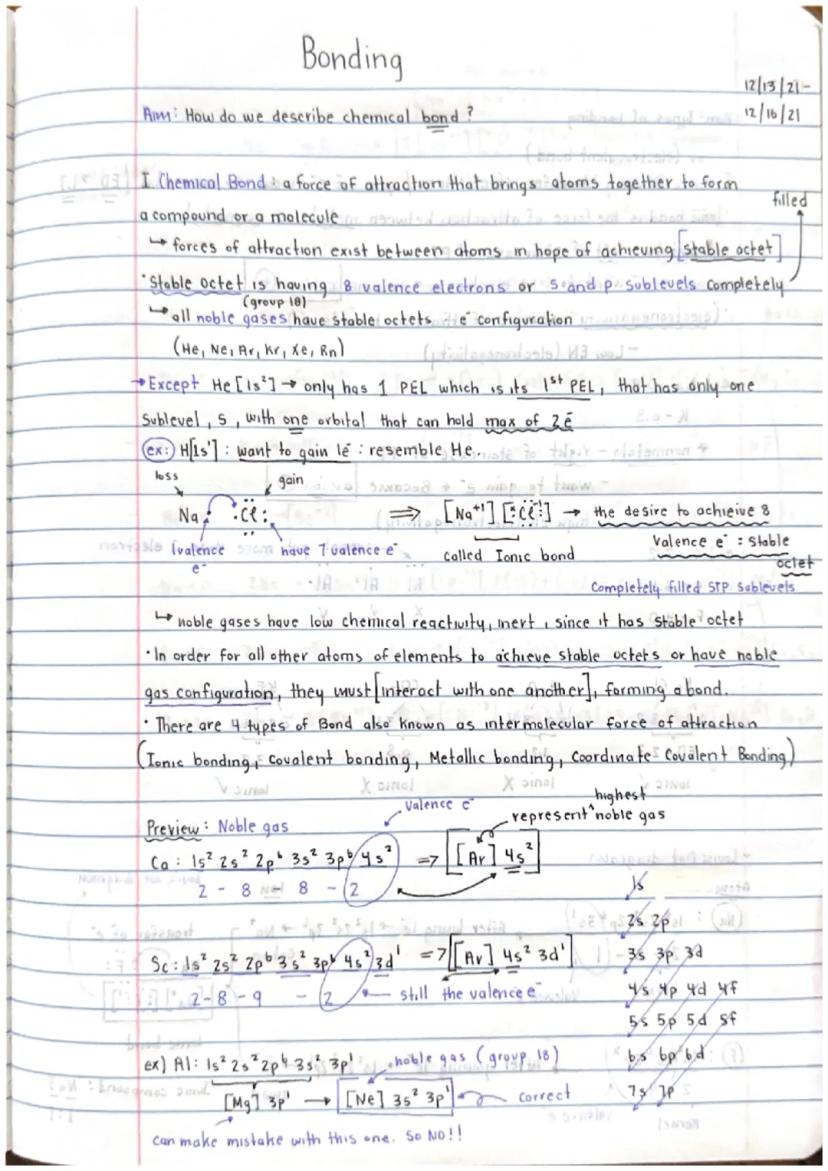 Bonding
12/13/21-
12/16/21
Aim: How do we describe chemical bond?
I Chemical Bond: a force of attraction that brings atoms together to form
a compound or a molecule
filled
↳ forces of attraction exist between atoms in hope of achieving [stable octet]
· Stable octet is having 8 valence electrons or s and p sublevels completely
(group 18)
↳ all noble gases have stable octets e⁻ configuration
(He, Ne, Ar, Kr, Xe, Rn)
→ Except He [1s²] → only has 1 PEL which is its 1st PEL, that has only one
sublevel, s, with one orbital that can hold max of 2e⁻
ex: H[1s¹]: want to gain 1e⁻: resemble He.
loss gain
Na· ·Cl: ⟹ [Na⁺¹] [:Cl:⁻¹] → the desire to achieive 8
1valence e⁻ have 7 valence e⁻ called Ionic bond valence e⁻: stable
octet
Completely filled S+P sublevels
↳ noble gases have low chemical reactivity, inert, since it has stable octet
· In order for all other atoms of elements to achieve stable octets or have noble
gas configuration, they must [interact with one another], forming a bond.
· There are 4 types of Bond also known as intermolecular force of attraction
(Ionic bonding, Covalent bonding, Metallic bonding, Coordinate Covalent Bonding)
valence e⁻
highest
Preview: Noble gas represent ^ noble gas
Ca: 1s² 2s² 2p⁶ 3s² 3p⁶ 4s² => [Ar] 4s²
2 - 8 - 8 - 2
Sc: 1s² 2s² 2p⁶ 3s² 3p⁶ 4s² 3d¹ => [[Ar] 4s² 3d¹]
2-8-9 - 2 ← still the valence e⁻
ex) Al: 1s² 2s² 2p⁶ 3s² 3p¹ noble gas (group 18)
[Mg] 3p¹ → [Ne] 3s² 3p¹ correct
can make mistake with this one. So NO!!
1s
2s 2p
3s 3p 3d
4s 4p 4d 4f
5s 5p 5d 5f
6s 6p 6d
7s 7p